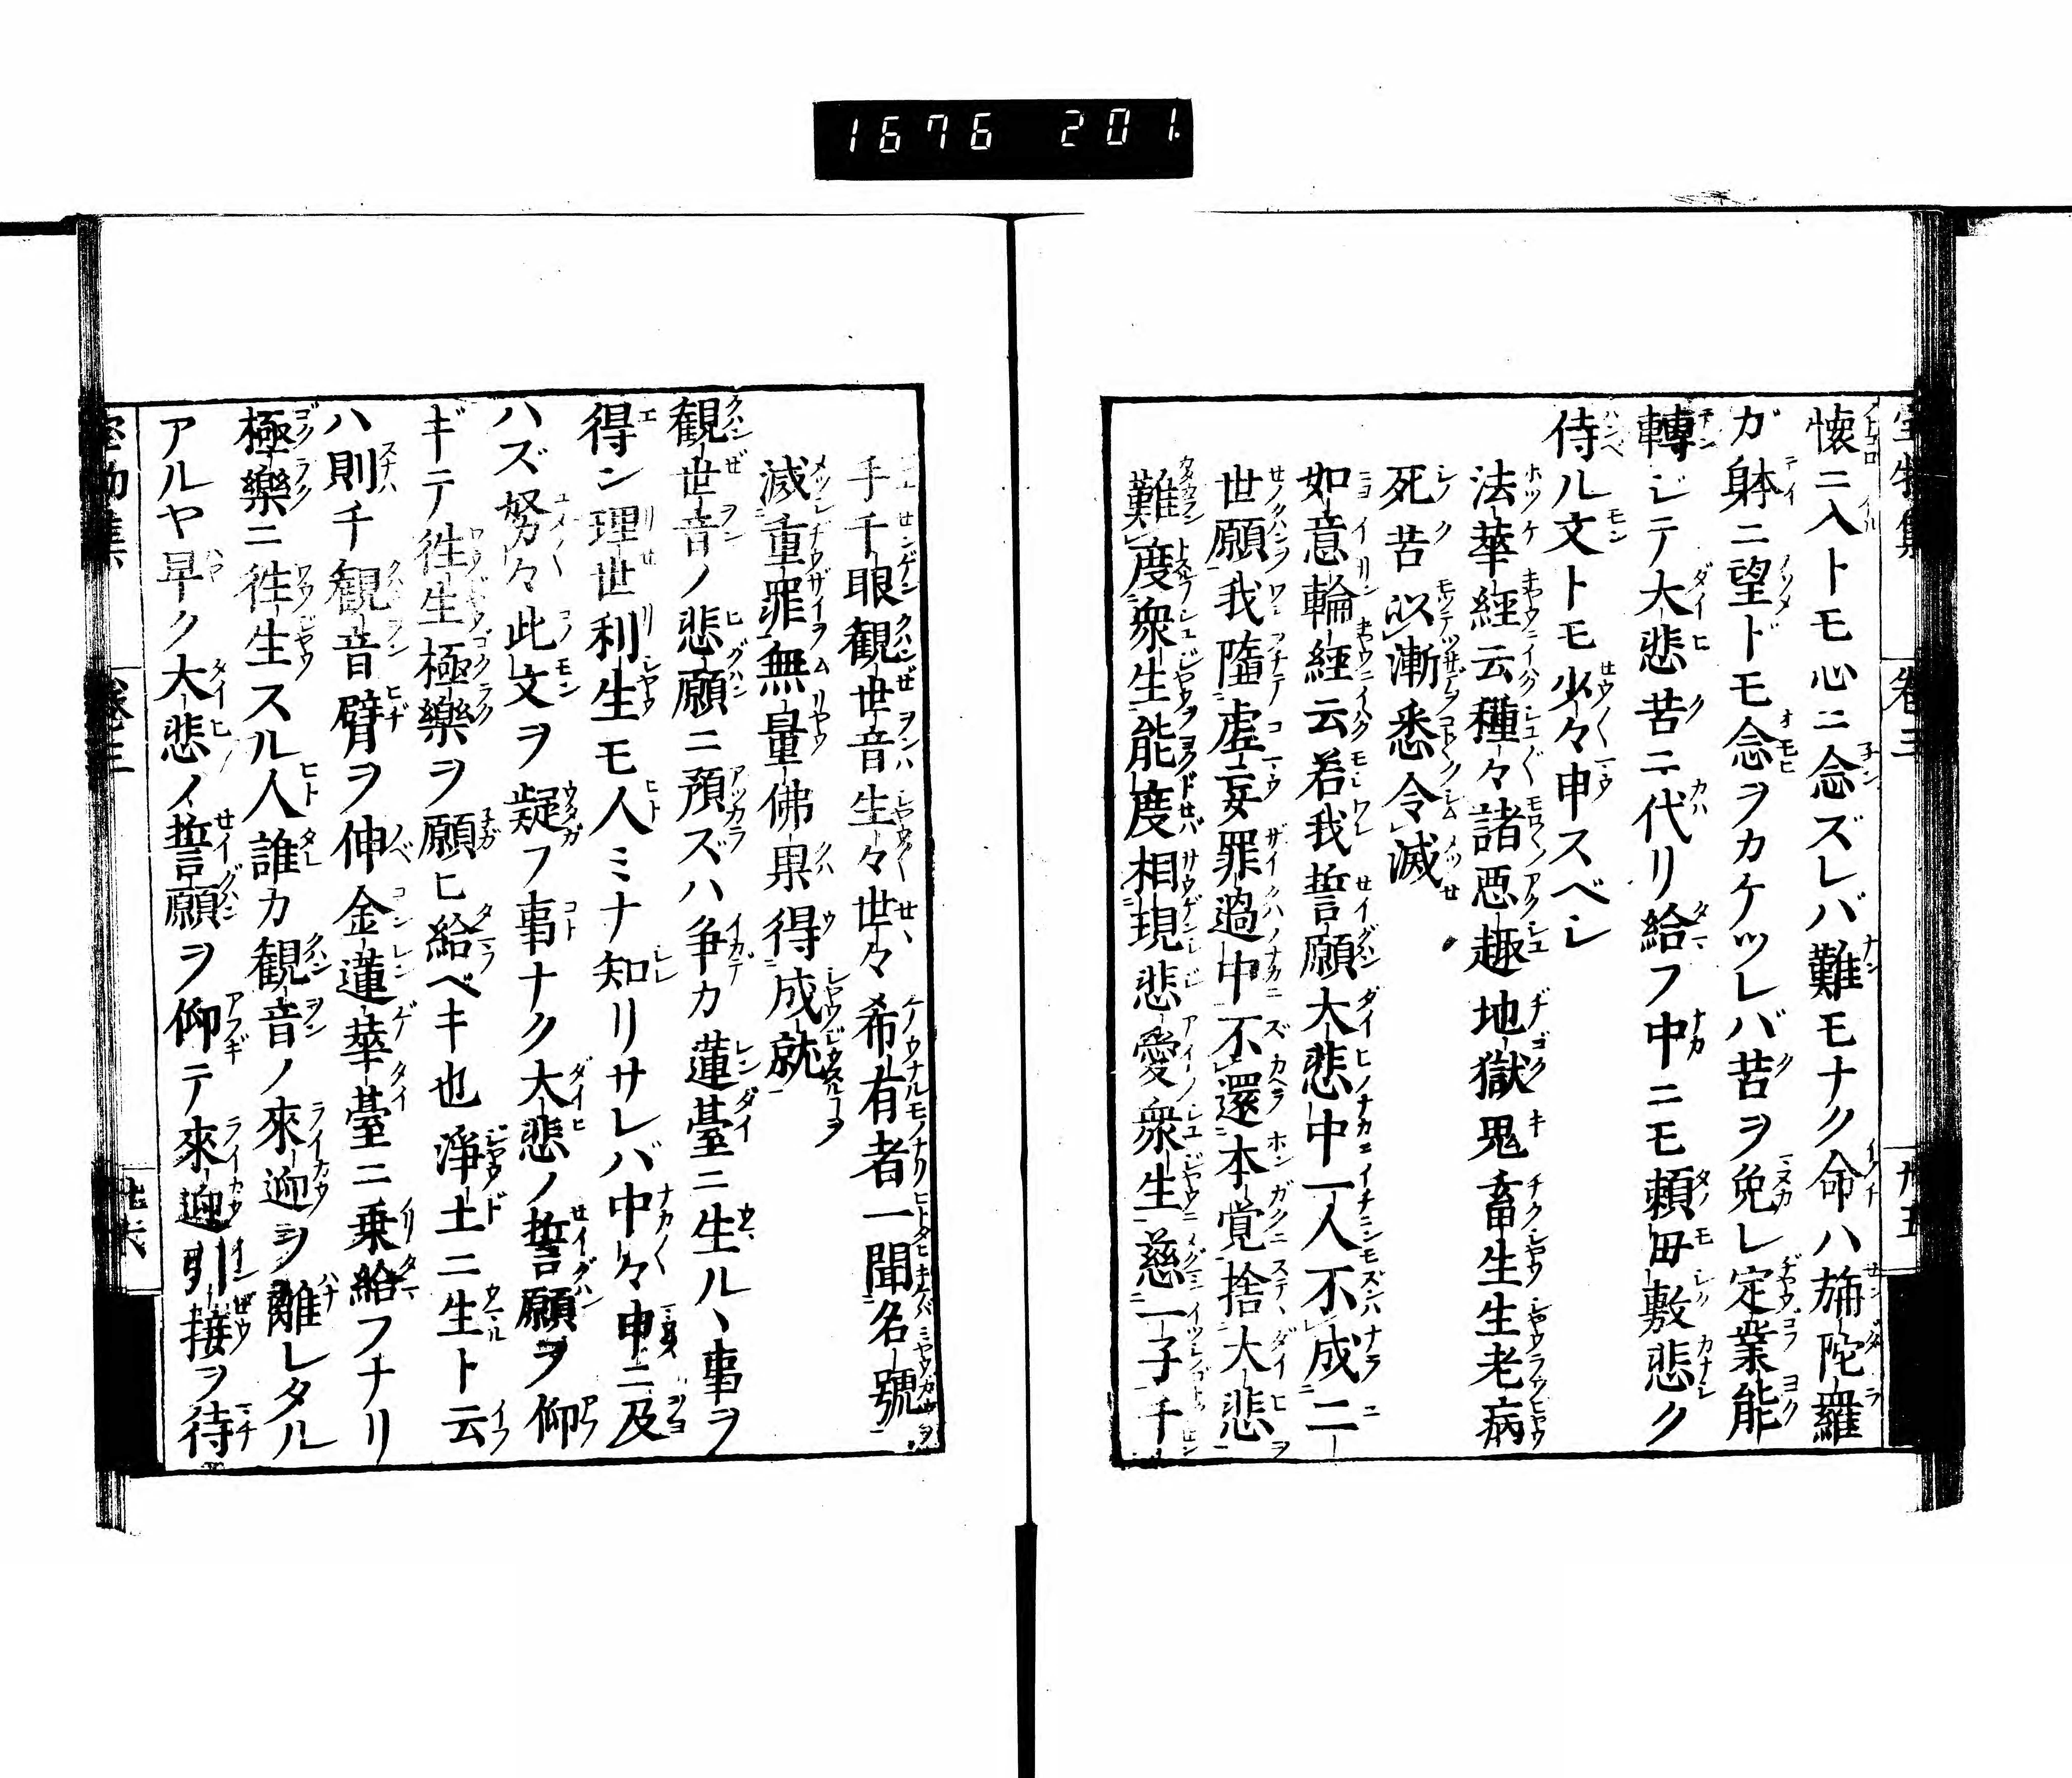 1676 201.
懐ニ入トモ心ニ念ズレバ難モナク命ハ旃陀羅
ガ躰ニ望ドモ念ヲカケツレバ苦ヲ免レ定業能
轉ジテ大悲苦ニ代リ給フ中ニモ頼毋敷悲ク
侍ル文トモ少々申スベシ
法華經云種々諸悪趣地獄鬼畜生生老病
死苦以漸悉令滅
如意輪経云若我誓願大悲中一人不成二
世願我墮虚妄罪過中不還本覚捨大悲
難度衆生能度相現悲愛衆生慈一子千
手千眼観世音生々世々希有者一聞名號
滅重罪無量佛果得成就
観世音ノ悲願ニ預ズハ争カ蓮臺ニ生ルヽ事ヲ
得ン理世利生モ人ミナ知リサレバ中々申ニ及
ハズ努々此文ヲ疑フ事ナク大悲ノ誓願ヲ仰
ギテ徃生極樂ヲ願ヒ給ベキ也淨土ニ生ト云
ハ則千観音臂ヲ伸金蓮華臺ニ乗給フナリ
極樂ニ徃生スル人誰カ観音ノ來迎ヲ離レタル
アルヤ早ク大悲ノ誓願ヲ仰テ來迎引接ヲ待